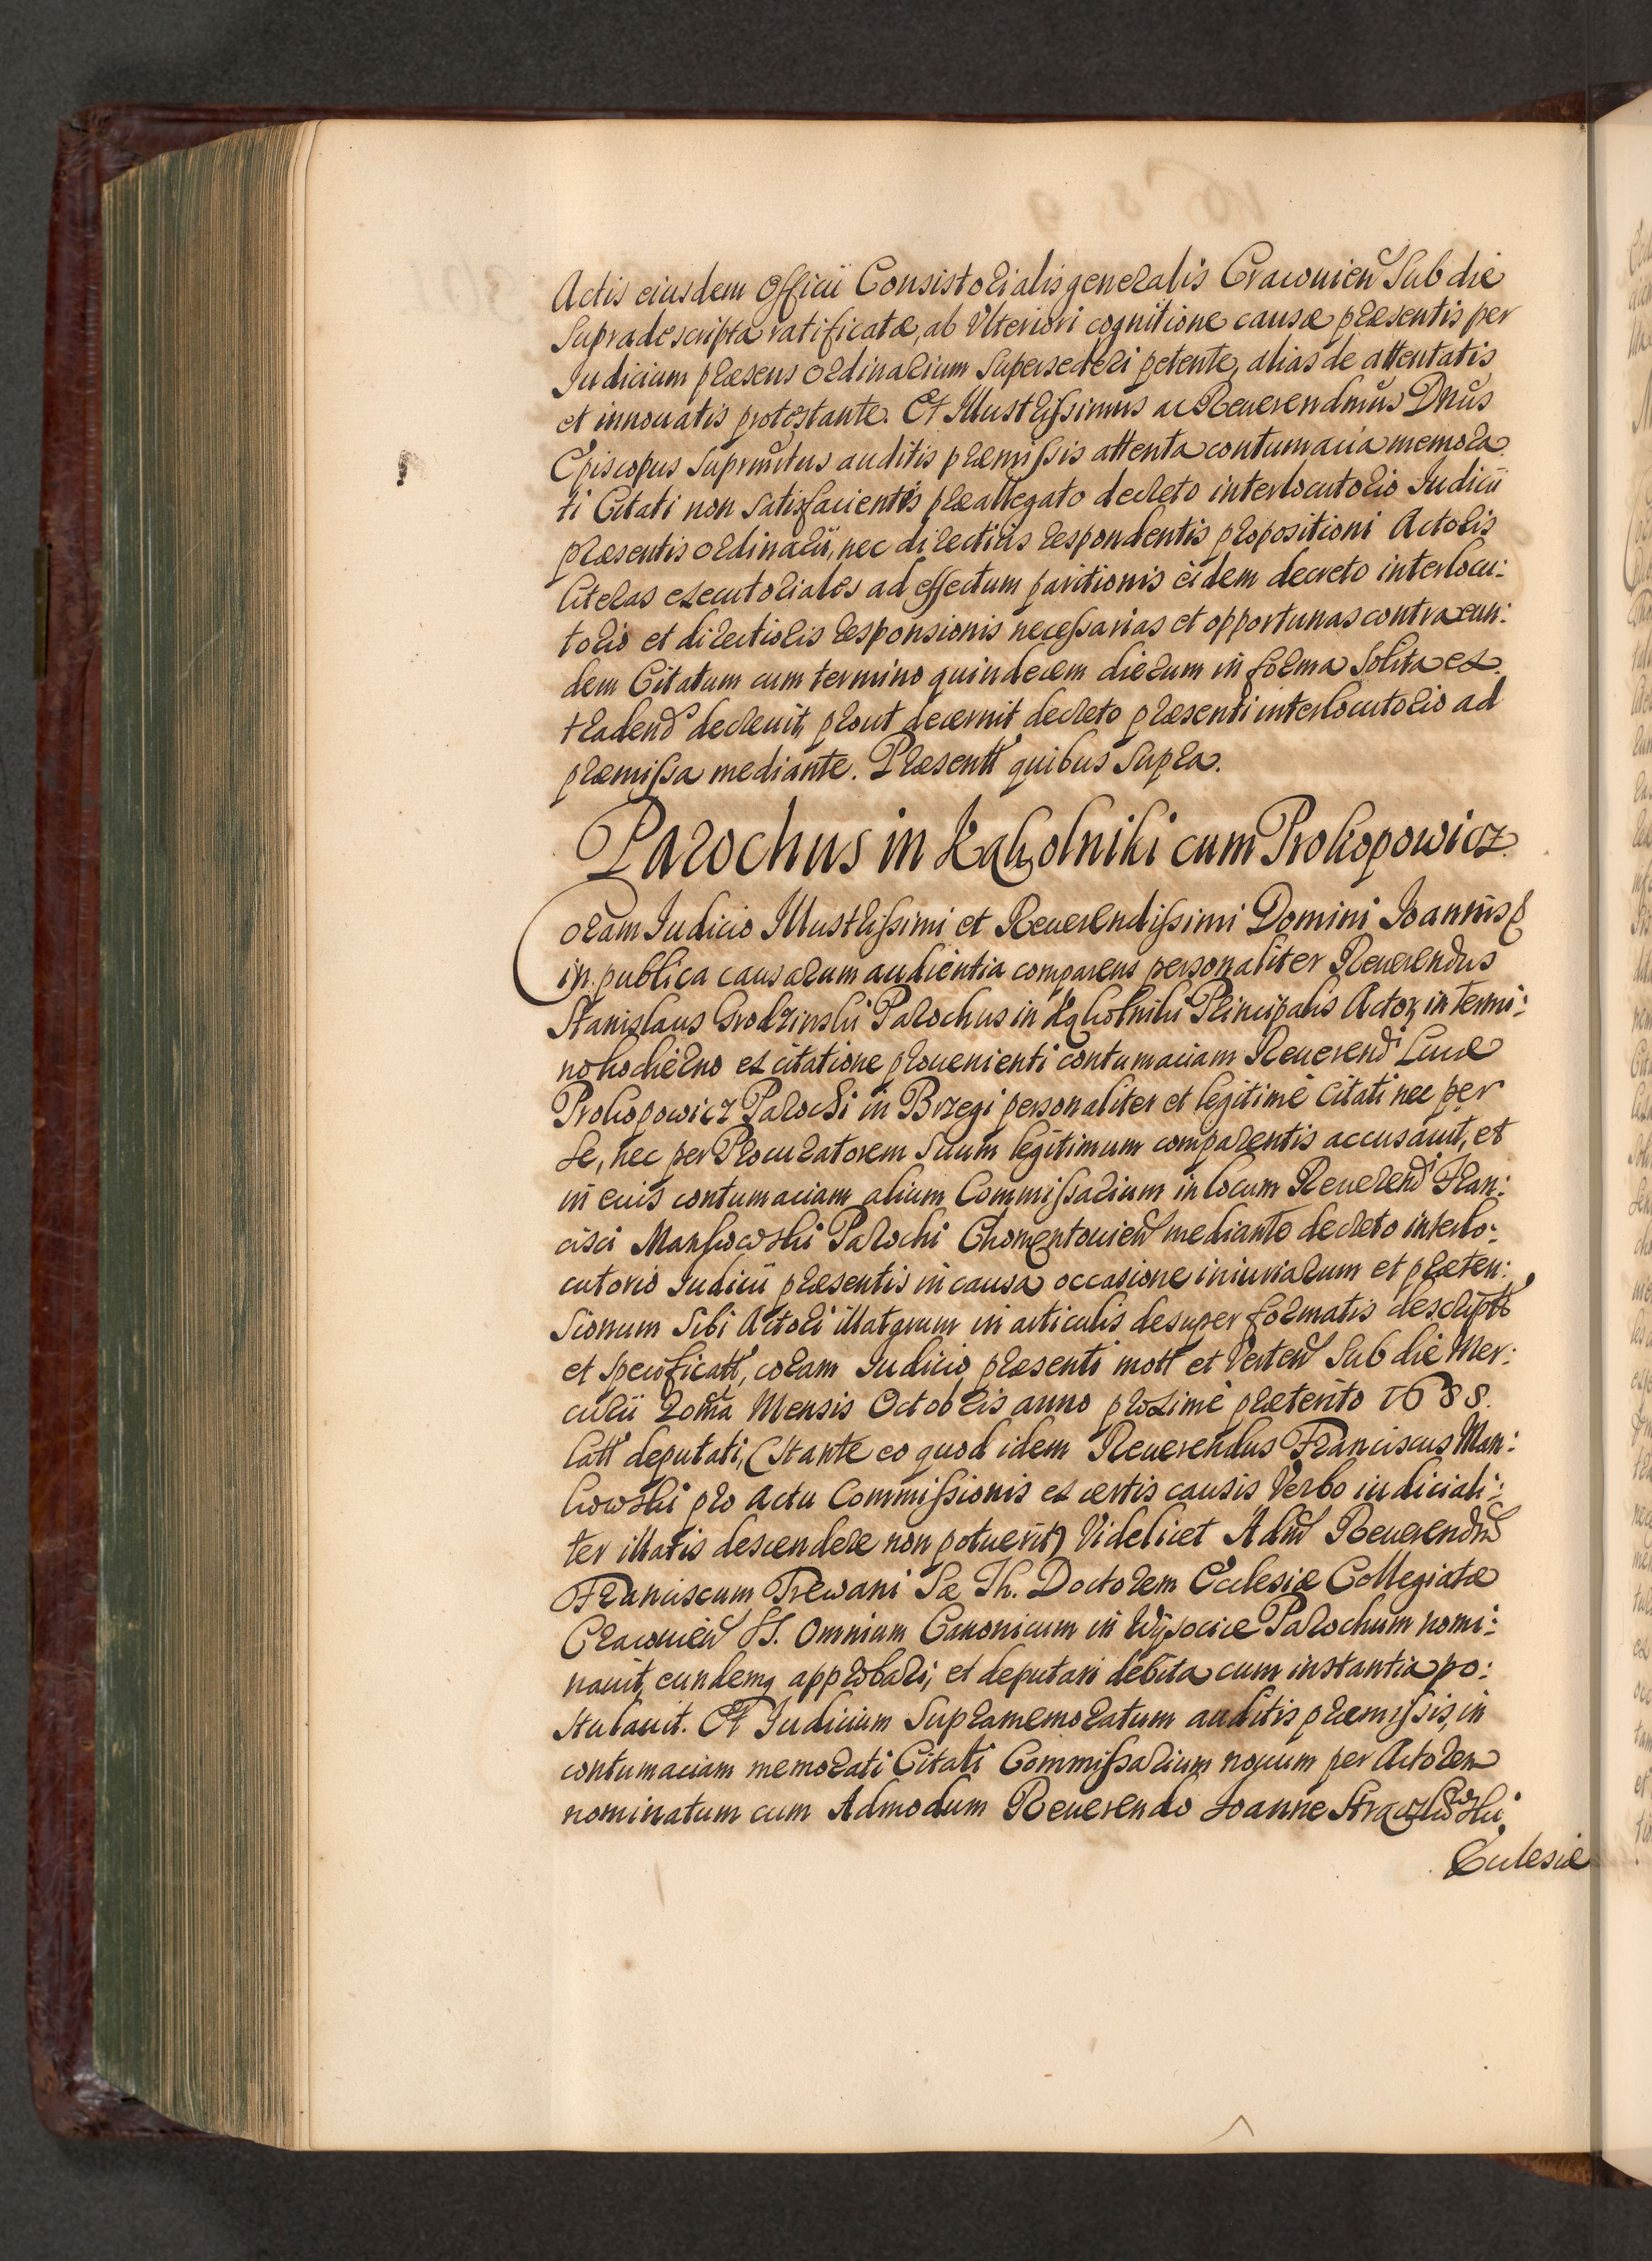 Actis eiusdem Officii Consistorialis generalis Cracouien Sub die
Supradescripta ratificatæ, ab Vlteriori cognitione causæ præsentis per
Iudicium præsens Ordinarium Supersederi petente, alias de attentatis
et innouatis protestante. Et Illustrissimus ac Reuerendmus Dnus
Episcopus Suprmtus auditis præmissis attenta contumacia memora
ti Citati non Satisfacientis præallegato decreto interlocutorio Iudicii
præsentis Ordinarii, nec directius respondentis propositioni Actoris
literas executoriales ad effectum paritionis eidem decreto interlocu:
torio et directioris responsionis necessarias et opportunas contra eun:
dem Citatum cum termino quindecem dierum in forma Solita ex
tradend decreuit, prout decernit decreto præsenti interlocutorio ad
præmissa mediante. Præsentt quibus Supra.
Parochus in Kąkolniki cum Prokopowicz.
Coram Iudicio Illustrissimi et Reuerendissimi Domini Ioannis
in publica causarum audientia comparens personaliter Reuerendus
Stanislaus Grodzinski Parochus in Kąkolniki Principalis Actor, in termi:
no hodierno ex citatione prouenienti contumaciam Reuerend Lucæ
Prokopowicz Parochi in Brzegi personaliter et legitime Citati nec per
Se, nec per Procuratorem Suum legitimum comparentis accusauit, et
in eius contumaciam alium Commissarium in locum Reuerend Fran:
cisci Mankowski Parochi Chomentouien mediante decreto interlo:
cutorio Iudicii præsentis in causa occasione iniuriarum et præten:
Sionum Sibi Actori illatarum in articulis desuper formatis descriptt
et specificatt, coram Iudicio præsenti mott et Verten Sub die Mer:
curii 20ma Mensis Octobris anno proxime præterito 1688.
latt deputati, (Stante eo quod idem Reuerendus Franciscus Man:
kowski pro Actu Commissionis ex certis causis Verbo iudiciali:
ter illatis descendere non potuerit) Videlicet Adm Reuerendum
Franciscum Trewani Sæ Th. Doctorem Ecclesiæ Collegiatæ
Cracouien SS. Omnium Canonicum in Wysocice Parochum nomi:
nauit, eundemq approbari, et deputari debita cum instantia po:
Stulauit. Et Iudicium Supramemoratum auditis præmissis, in
contumaciam memorati Citati Commissarium nouum per Actorem
nominatum cum Admodum Reuerendo Ioanne
Ecclesiæ